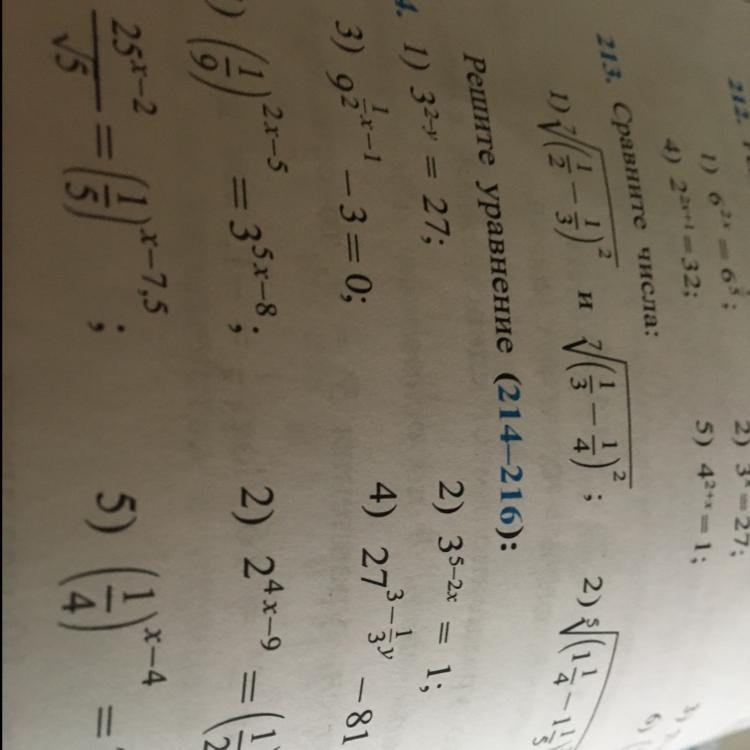 212.
1) 6^{2x} = 6^{\frac{1}{5}}; 2) 3^x = 27;
4) 2^{2x+1} = 32; 5) 4^{2+x} = 1;
213. Сравните числа:
1) \sqrt[7]{\left(\frac{1}{2} - \frac{1}{3}\right)^2} и \sqrt[7]{\left(\frac{1}{3} - \frac{1}{4}\right)^2}; 2) \sqrt[5]{\left(1\frac{1}{4} - 1\frac{1}{5}\right)
Решите уравнение (214—216):
4. 1) 3^{2-y} = 27; 2) 3^{5-2x} = 1;
3) 9^{\frac{1}{2}x-1} - 3 = 0; 4) 27^{3-\frac{1}{3}y} - 81
) \left(\frac{1}{9}\right)^{2x-5} = 3^{5x-8}; 2) 2^{4x-9} = \left(\frac{1}{2}
\frac{25^{x-2}}{\sqrt{5}} = \left(\frac{1}{5}\right)^{x-7,5}; 5) \left(\frac{1}{4}\right)^{x-4} =